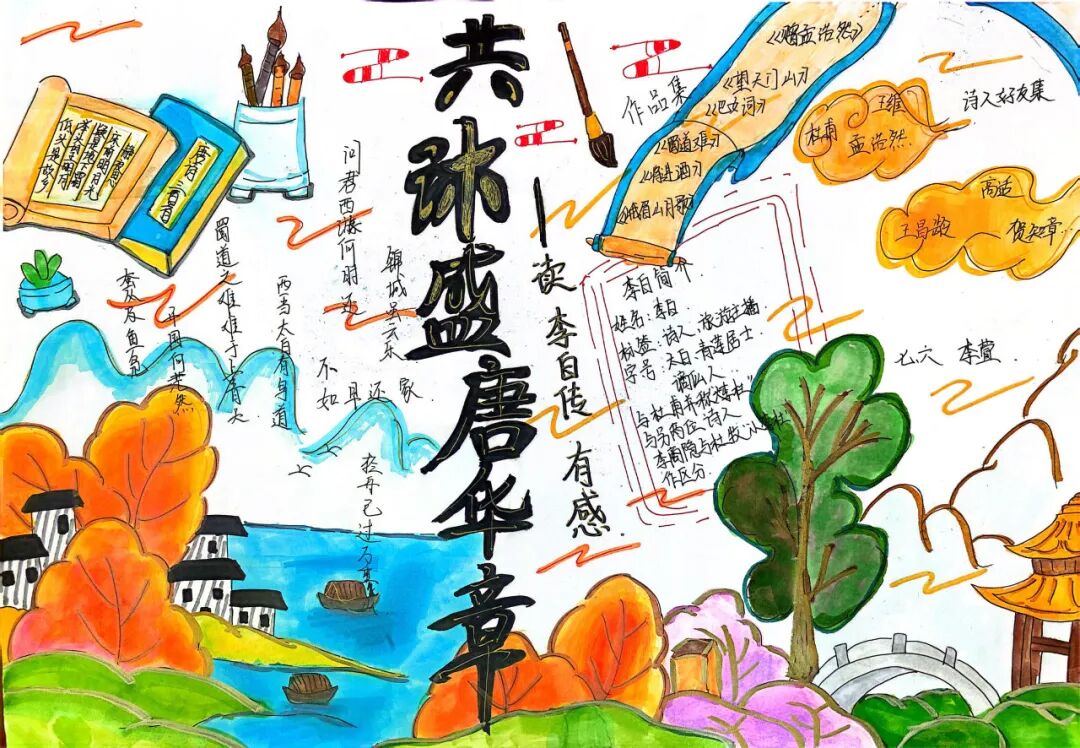 共沐盛唐华章
—读李白传有感
静夜思
床前明月光
疑是地下霜
举头望明月
低头思故乡
唐诗三百首
问君西游何时还
锦城虽云乐
不如早还家
西当太白有鸟道
蜀道之难难于上青天
开国何茫然
蚕丛及鱼凫
轻舟已过万重
作品集
《赠孟浩然》
《望天门山》
《蜀道难》
《将进酒》
《峨眉山月歌》
诗人好友集
王维
杜甫
孟浩然
高适
王昌龄
贺知章...
李白简介
姓名:李白
标签:诗人、旅游主播
字号:太白、青莲居士
谪仙人
与杜甫并称"李杜"
与另两位诗人
李商隐与杜牧"小李杜
作区分
七六 李萱